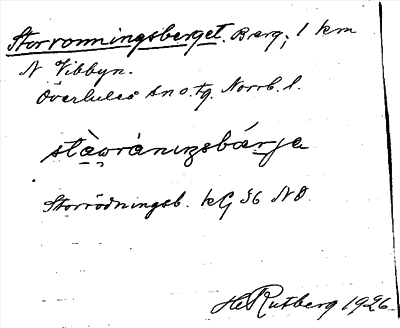 Storronningsberget. Berg; 1 km
N Vibbyn.
Överluleå sn o. tg. Norrb. l.
stàwrànıŋsbárja
Storrödningsb. kG 36 NO
HRutberg 1926.